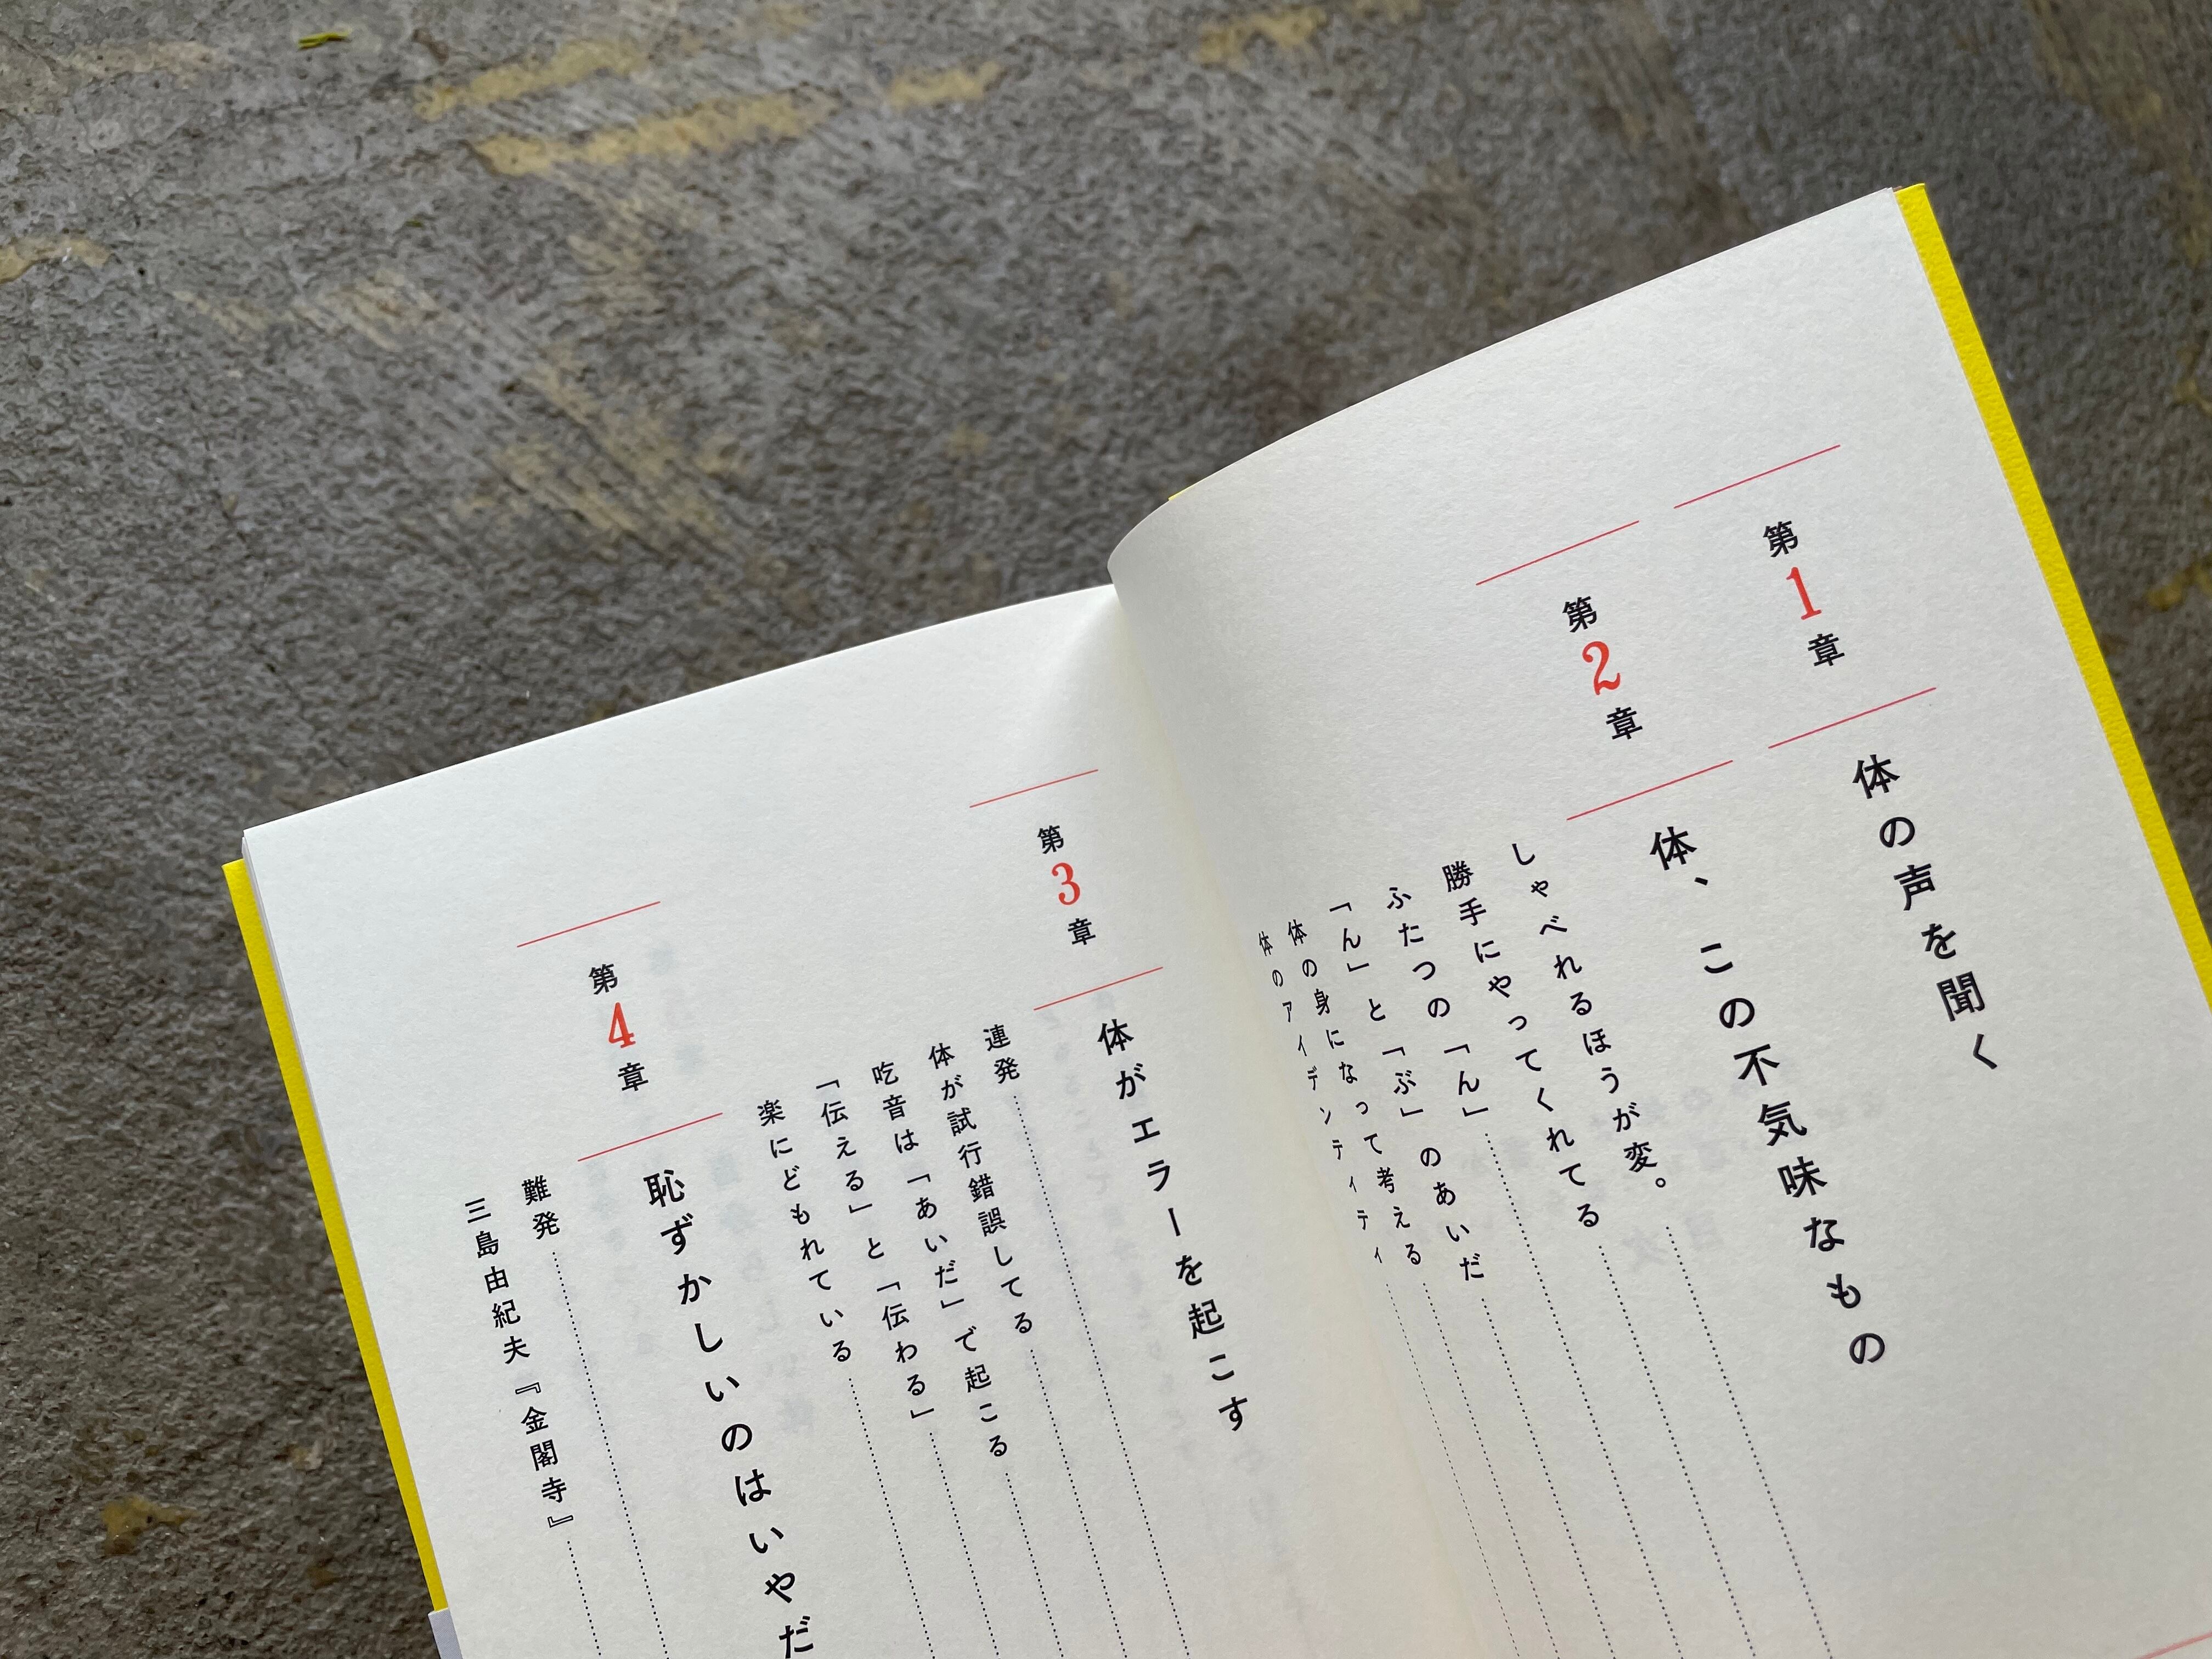 第1章
体の声を聞く
第2章
体、この不気味なもの
しゃべれるほうが変。
勝手にやってくれてる
ふたつの「ん」
「ん」と「ぶ」のあいだ
体の身になって考える
体のアイデンティティ
第3章
体がエラーを起こす
連発
体が試行錯誤してる
吃音は「あいだ」で起こる
「伝える」と「伝わる」
楽にどもれている
第4章
恥ずかしいのはいやだ
難発
三島由紀夫『金閣寺』